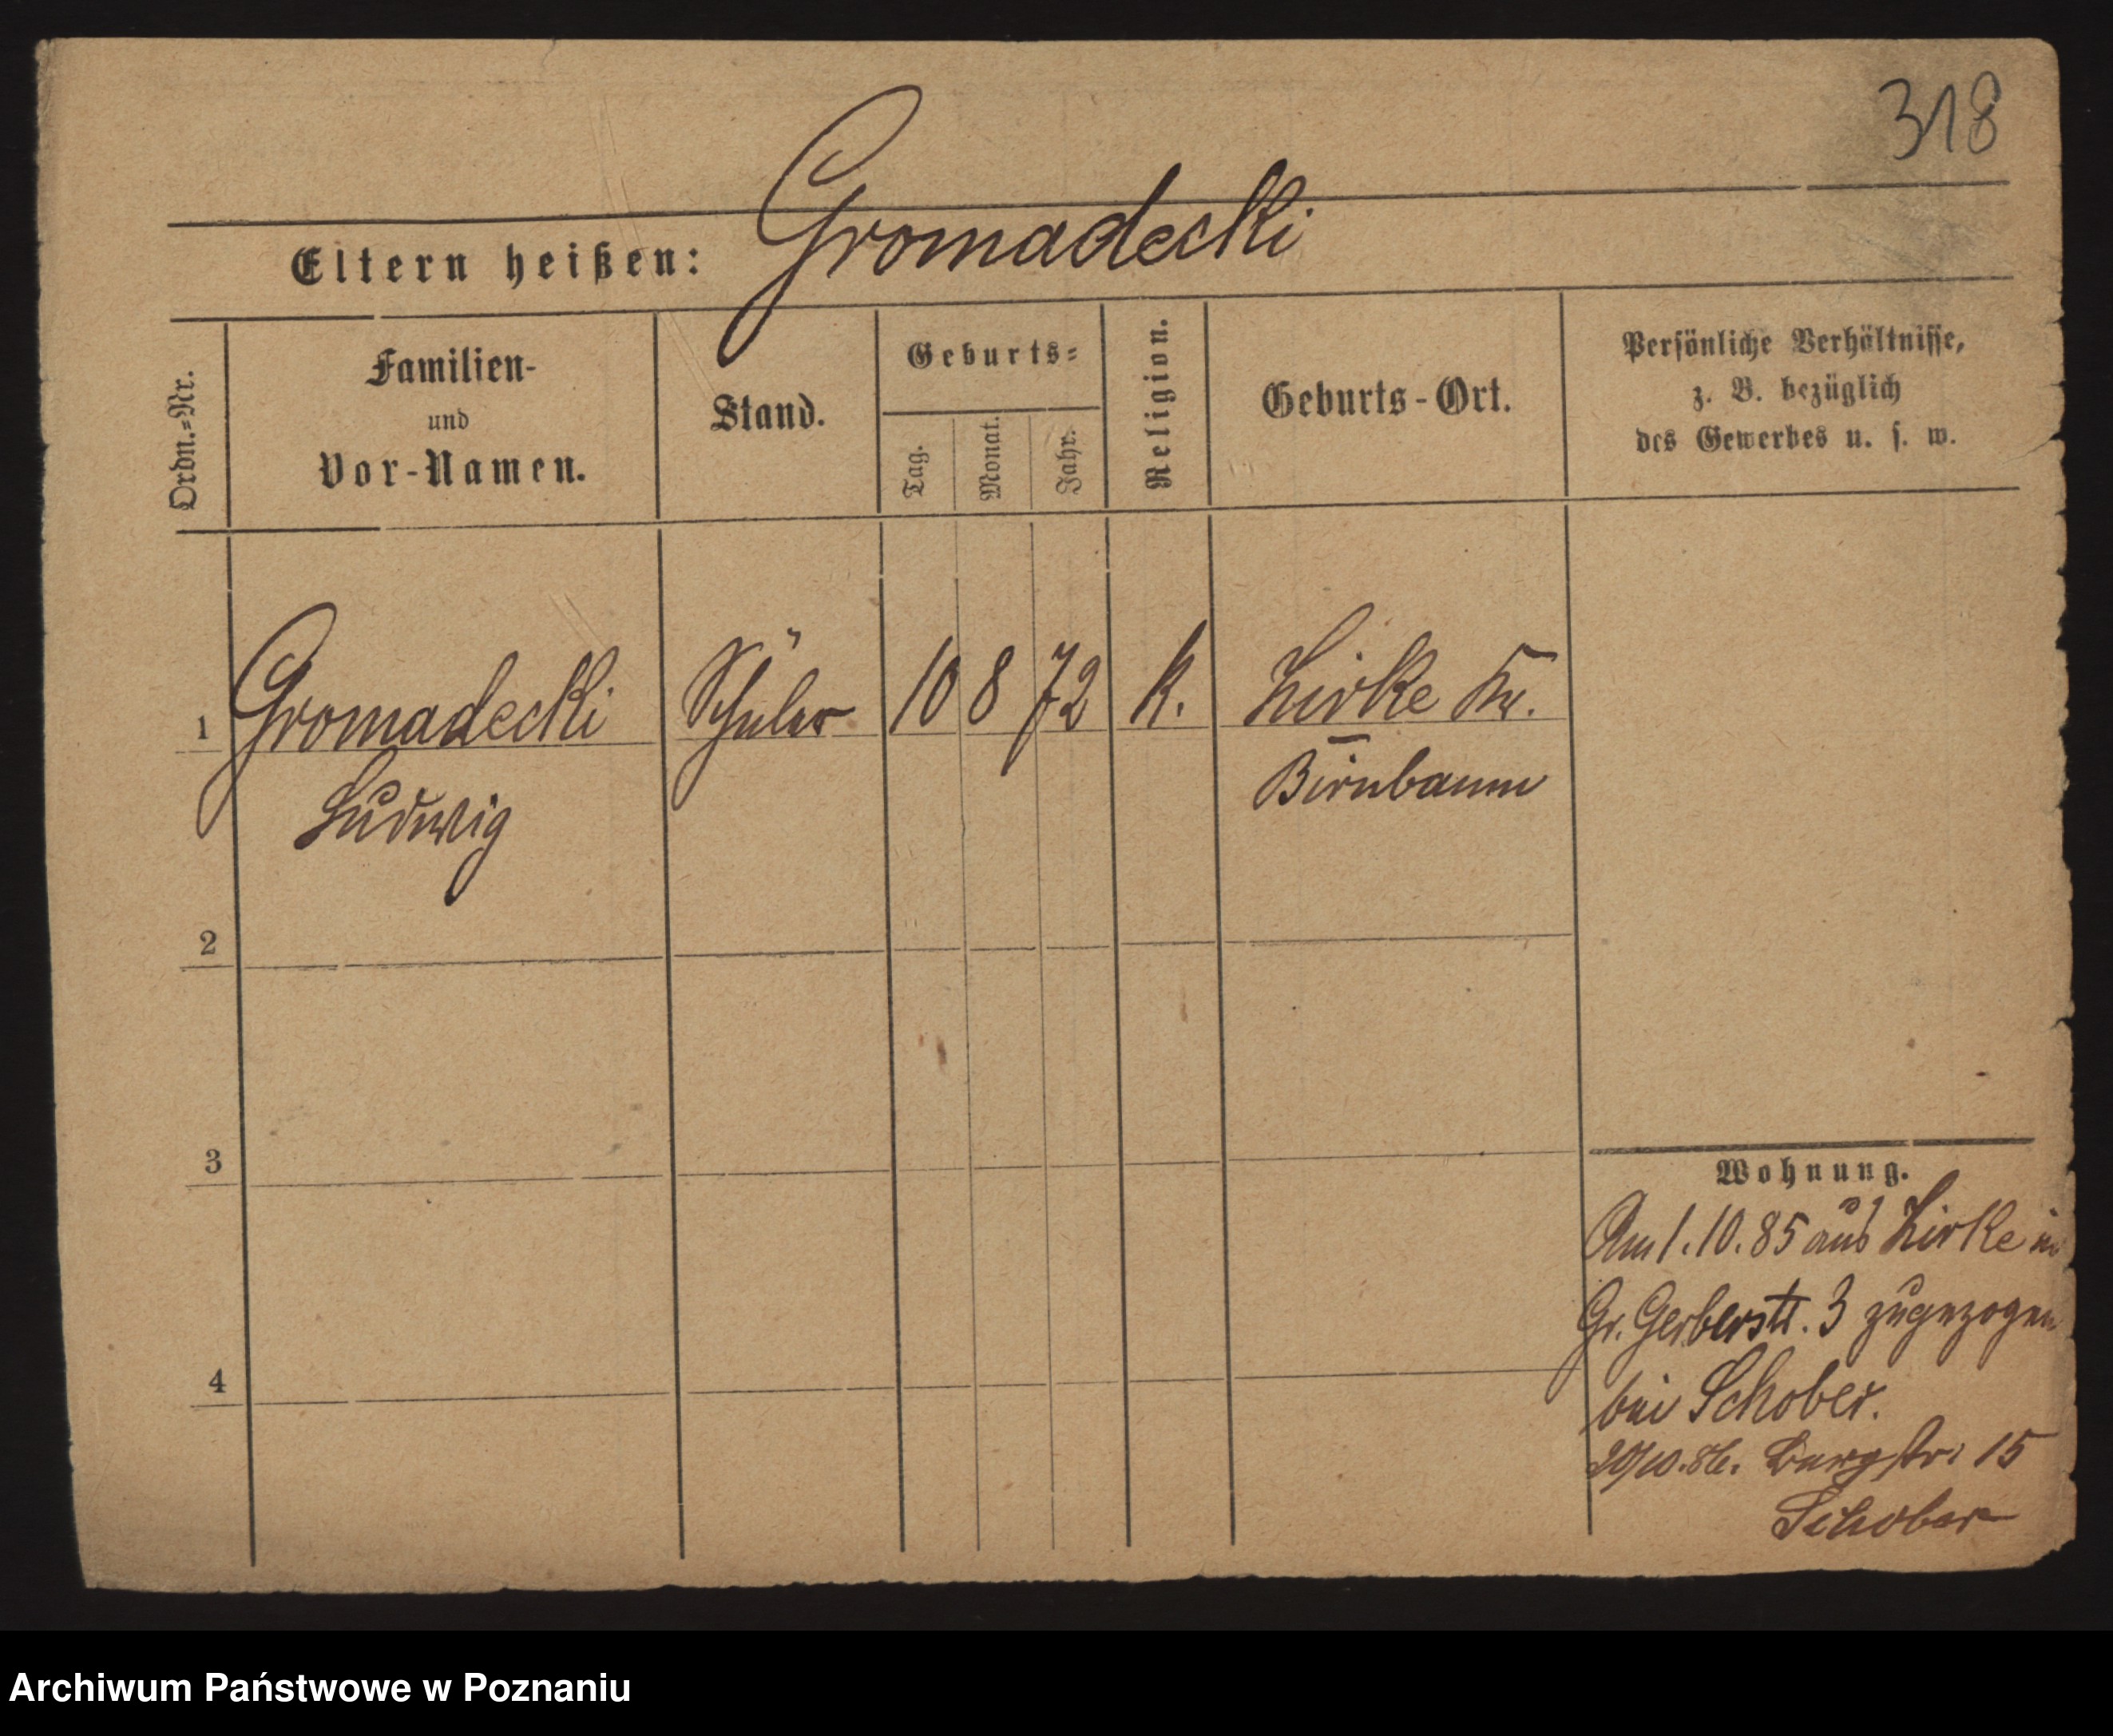 318
Eltern heißen: Gromadecki
Ordn.-Nr.
Familien-
und
Vor-Namen.
Stand.
Geburts-
Tag.
Monat.
Jahr.
Religion.
Geburts-Ort.
Persönliche Verhältnisse,
z. B. bezüglich
des Gewerbes u. s. w.
1 Gromadecki Schüler 10 8 72 k. Zirke Kr.
Ludwig Birnbaum
2
3
4
Wohnung.
Am 1.10.85 aus Zirke in
Gr. Gerberstr. 3 zugezogen
bei Schober.
20/10.86. Burgstr. 15
Schober
Archiwum Państwowe w Poznaniu